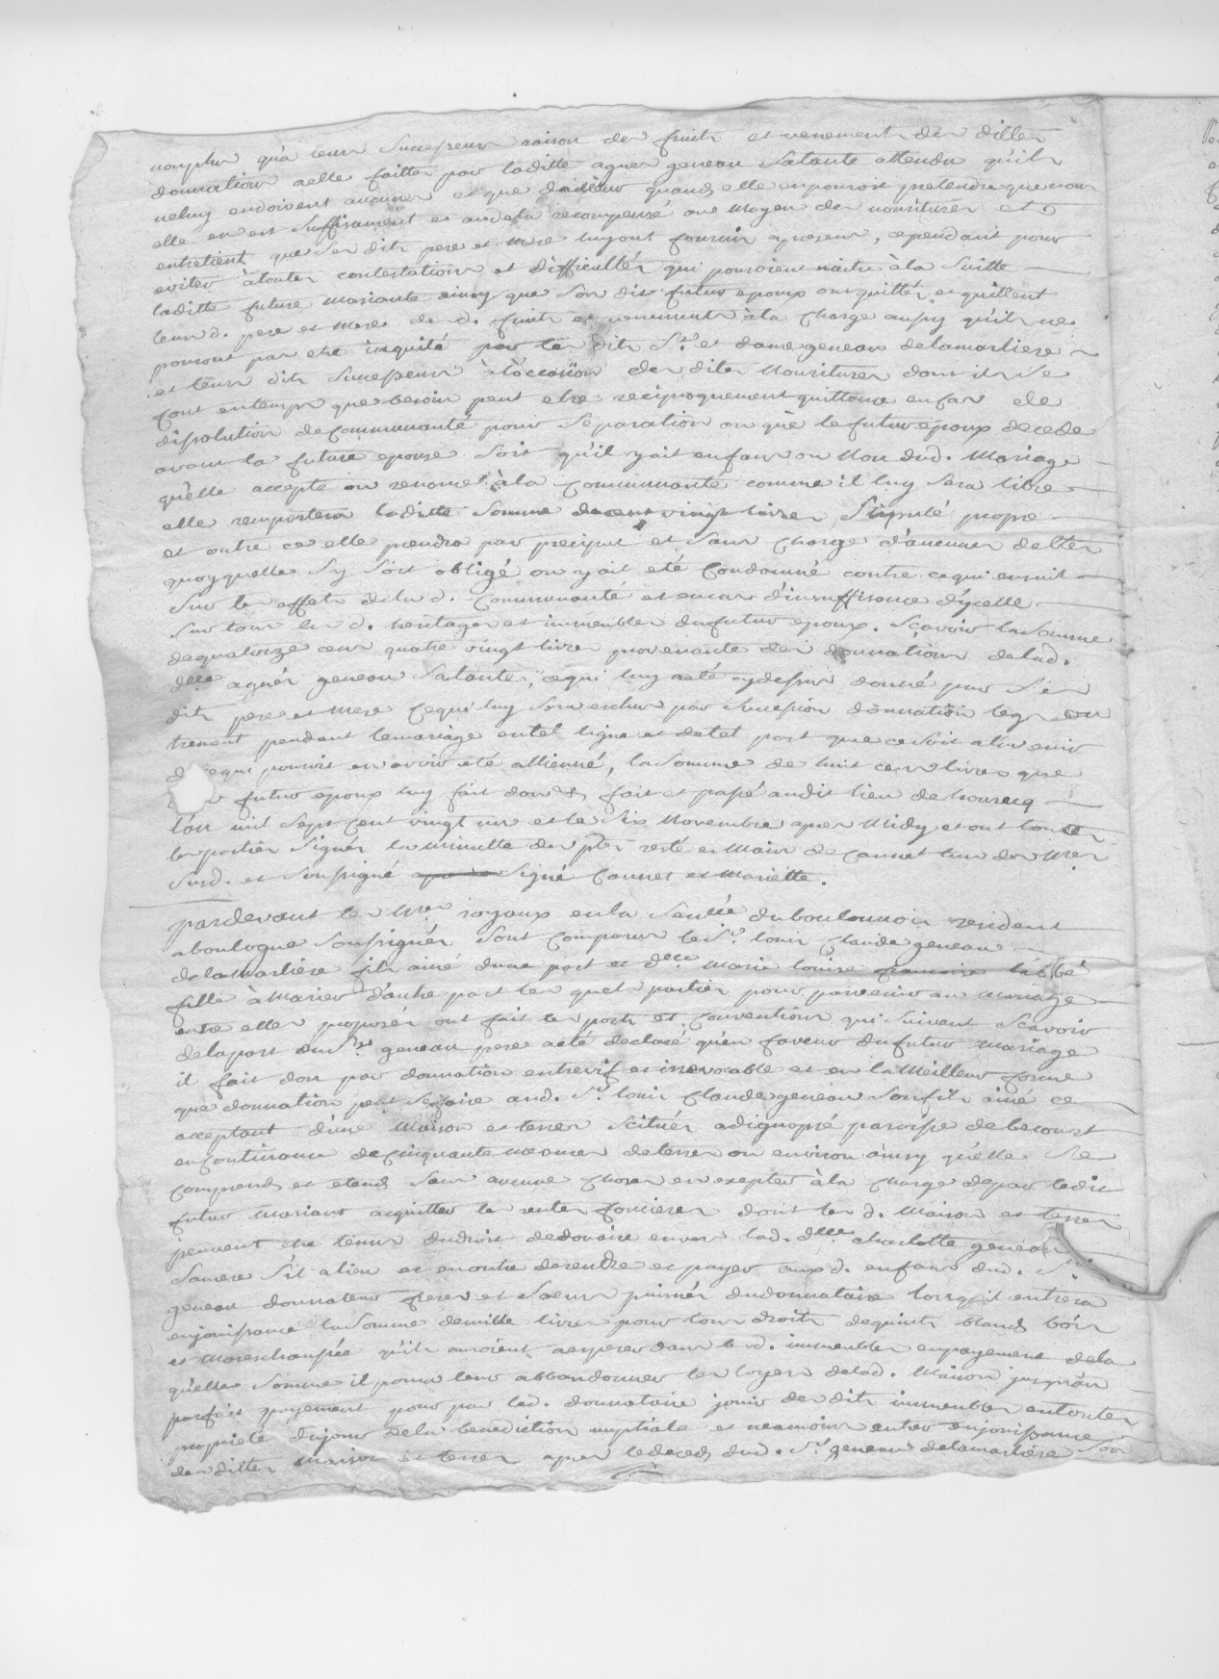 nonplus qu'a leurs Successeurs raison des fruits et revenements des dittes
donnations a elle faittes par laditte agnes geneau Satante attendu qu'ils
neluy endoivent aucuns et que dailleur quand elle en pouroit pretendre que non
elle en est Suffisament et audela recompensé au Moyen des nouritures et
entretient que Ses dits pere et Mere luy ont fournir apresent, cependant pour
eviter à toutes contestations et difficultés qui pouroient naitre à la Suitte
laditte future Mariante ainsy que Son dit futur epoux ont quittés et quittent
leurs d. pere et Mere de d. fruits et revenements à la Charge aussy qu'ils ne
pouront par etre inquité par les dits Sr et dame geneau delamarliere
et leurs dits Successeurs à l'occasion des dites Nouritures dont ils Se
font entemps que besoin peut etre reciproquement quittance en cas de
dissolution de Communauté pour Separation ou què le futur epoux decede
avant la future epouse Soit qu'il yait enfans ou Non dud. Mariage
quèlle accepte ou renonce à la Communauté comme il luy Sera libre
elle remportera laditte Somme de cent vingt livres Stipulé propre
et outre ce elle prendra par preciput et Sans Charge d'aucunes dettes
quoy quelle Sy Soit obligé ou yait été Condamné contre ce qui ensuit
Sur les effets de lad. Communauté et en cas d'insuffisance d'ycelle
Sur tous les d. heritages et immeubles du futur epoux. Sçavoir la Somme
de quatorze cens quatre vingt livres provenante des donnations de lad.
dlle agnés geneau Satante, ce qui luy a été cy dessus donné par Ses
dits pere et Mere Ce qui luy Sera escheu par Succession donnation legs ou
trement pendant le mariage en tel ligne et de tel part que ce Soit a lavenir
ce qui pouroit en avoir été allienné, la Somme de huit cens livres que
futur epoux luy fait don fait et passé audit lieu de hourecq
l'an mil Sept Cent vingt un et le Six Novembre apres Midy et ont toutes
les parties Signés la Minutte des pntes resté es Mains de Cannet lun des Nres
Susd. et Soussigné Signé Cannet et Mariette.
pardevant les Nres royaux en la Senée du boulonnois residents
a boulogne Soussignés Sont Comparus le Sr louis Claude geneau
de la Marliere fils ainé dune part et dlle Marie louise francoise labbé
fille à Marier d'autre part les quels parties pour parvenir au Mariage
entre elles proposés ont fait les parts et Conventions qui Suivent Sçavoir
de la part du Sr geneau pere a été declaré qu'en faveur du futur Mariage
il fait don par donnation entrevif et irrevocable et en la Meilleur forme
que donnation peut Se faire aud. Sr louis Claude geneau Son fils ainé ce
acceptant d'une Maison et terres Scitués a dignopré paroisse de becourt
en Continance de Cinquante Mesures de terres ou environ ainsy qu'elle Se
Comprend et etend Sans aucune Choses en excepter à la Charge de par ledit
futur Mariant acquitter les rentes foncieres dont les d. Maison et terres
peuvent etre tenus du droit de douaire envers lad. dlle Charlotte geneau
Samere S'il a lieu et en outre de rendre et payer aux d. enfans dud. Sr
geneau donnateur freres et Soeurs puinés du donnataire lorsqu'il entrera
en jouissance la Somme de mille livres pour tous droits de quints blands bois
et Mareschaussée qu'ils auroient a esperer dans les d. immeubles en payement de la
quelle Somme il poura leur abbandonner les loyers de lad. Maison jusqu'au
parfait payement pour par led. donnataire jouir des dits immeubles en toutes
proprieté du jour de la benediction nuptiale et neamoins entrer en jouissance
des dittes Maison et terres apres le deced dud. Sr geneau delamarliere Son